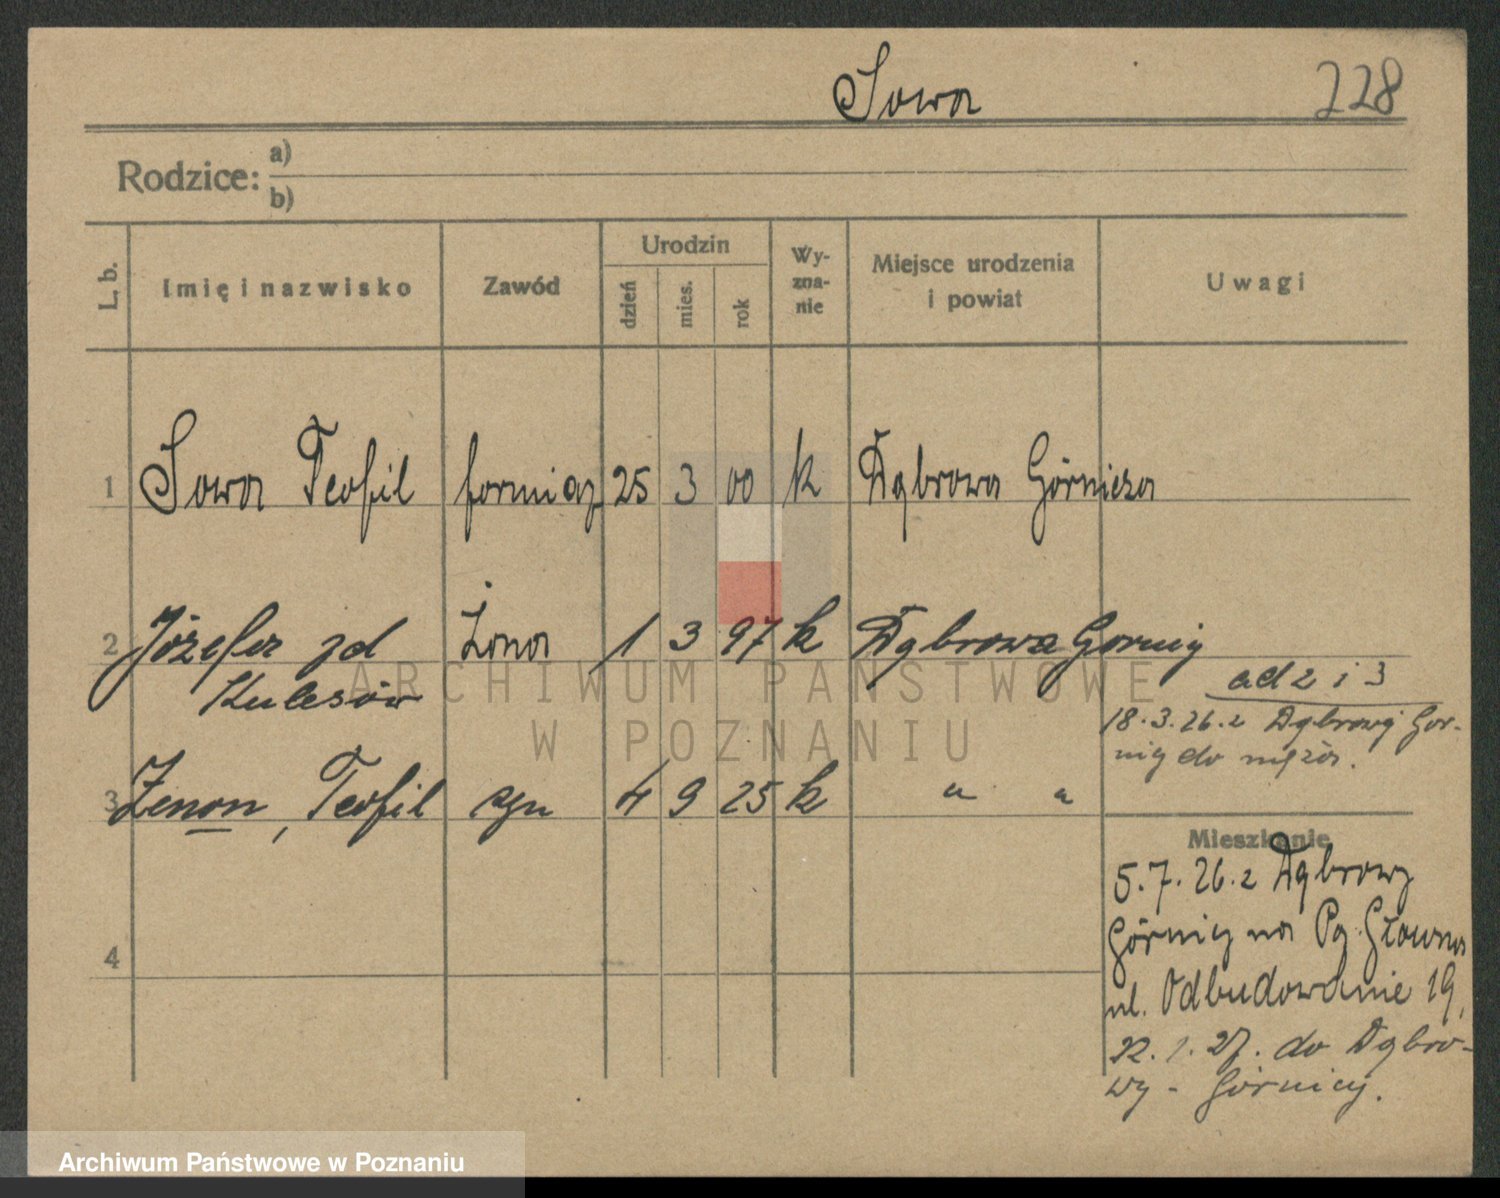 Sowa 228
Rodzice: a)
b)
L. b.
Imię i nazwisko
Zawód
Urodzin
dzień
mies.
rok
Wy-
zna-
nie
Miejsce urodzenia
i powiat
Uwagi
1 Sowa Teofil formiaz 25 3 00 k Dąbrowa Górnicza
2 Józefa zd Żona 1 3 97 k Dąbrowa Gornicy
Kulesów
ad 2 i 3
18.3.26. z Dąbrowy Gor-
nicy do męża.
3 Zenon, Teofil syn 4 9 25 k " "
Mieszkanie
5.7.26. z Dąbrowy
Górnicy na Pg. Głowna
ul. Odbudowanie 19,
22.1.27. do Dąbro-
wy - Górnicy.
4
ARCHIWUM PAŃSTWOWE
W POZNANIU
Archiwum Państwowe w Poznaniu